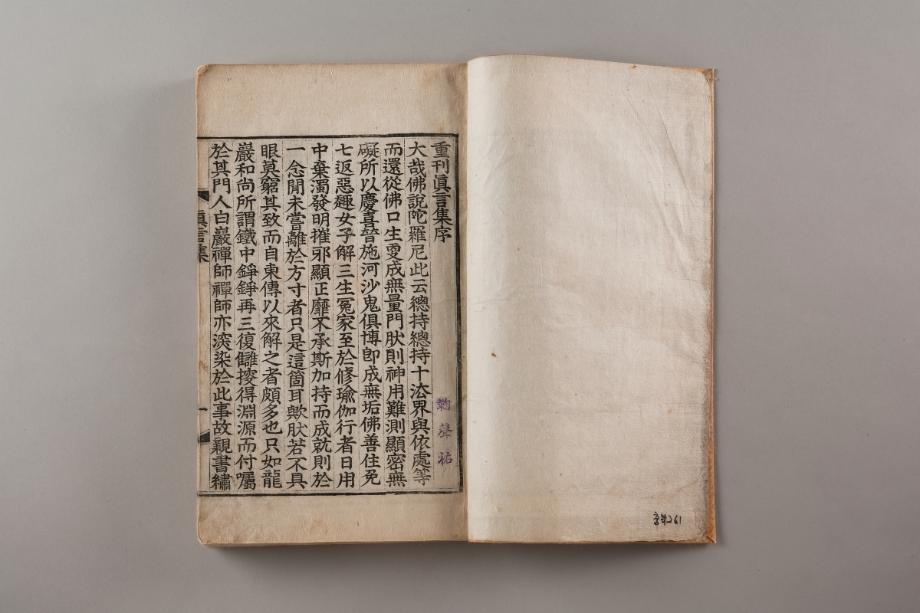 重刊眞言集序
大哉佛說陀羅尼此云總持總持十法界與依處等
而還從佛口生雯成無量門肰則神用難測顯密無
礙所以慶喜晉施河沙鬼俱博卽成無垢佛善住免
七返惡趣女子解三生冤家至於修瑜伽行者日用
中棄濁發明摧邪顯正靡不承斯加持而成就則於
一念閒未嘗離於方寸者只是這箇耳歟肰若不具
眼莫窮其致而自東傳以來解之者頗多也只如龍
巖和尚所謂鐵中錚錚再三復讎挍得淵源而付囑
於其門人白巖禪師禪師亦深染於此事故親書繡
眞言集
一
261